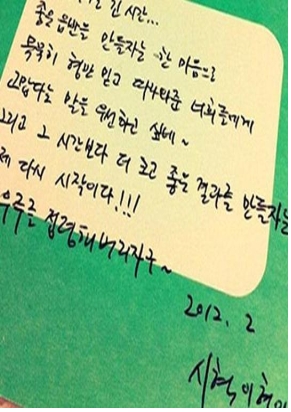 긴 시간...
좋은 음반을 만들자는 한 마음으로
묵묵히 형만 믿고 따라와준 너희들에게
고맙다는 말을 전하고 싶네~
그리고 그 시간보다 더 크고 좋은 결과를 만들자는
다시 시작이다!!!
우주를 점령해버리자구~
2012. 2
시혁이형이